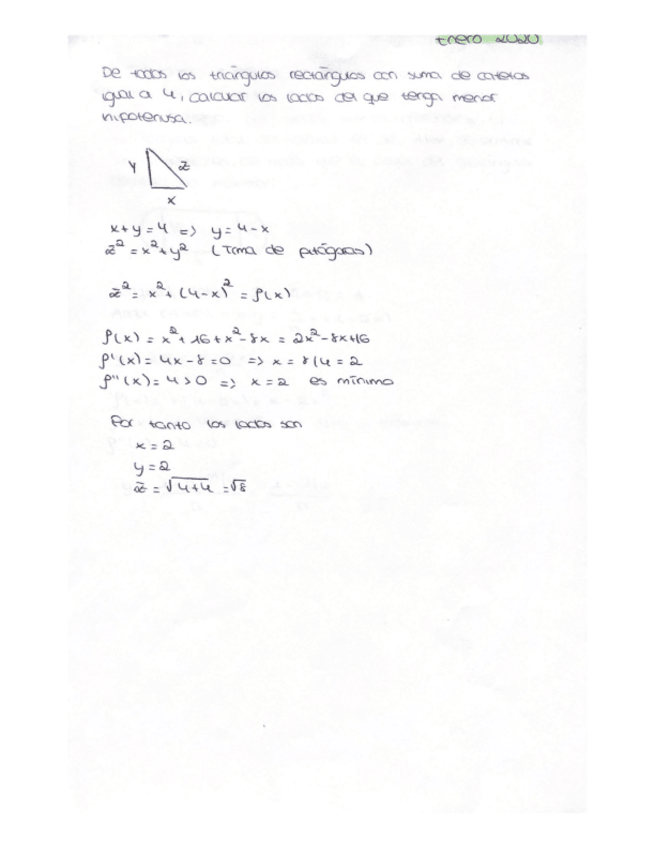 Enero 2020
De todos los triángulos rectángulos con suma de catetos
igual a 4, calcular los lados del que tenga menor
hipotenusa.
y z
x
x+y=4 => y=4-x
z²=x²+y² (Tma de pitágoras)
z²=x²+(4-x)²=f(x)
f(x)=x²+16+x²-8x=2x²-8x+16
f'(x)=4x-8=0 => x=8/4=2
f''(x)=4>0 => x=2 es mínimo
Por tanto los lados son
x=2
y=2
z=√4+4=√8